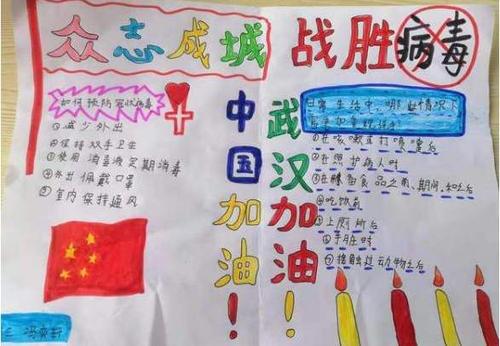 众志成城
战胜病毒
如何预防冠状病毒
①减少外出
②保持双手卫生
③使用消毒液定期消毒
④外出佩戴口罩
⑤室内保持通风
中国加油!
武汉加油!
日常生活中,哪些情况下
①在咳嗽或打喷嚏后
②在照护病人时
③在准备食品之前、期间和之后
④吃饭前
⑤上厕所后
⑥手脏时
⑦接触过动物之后